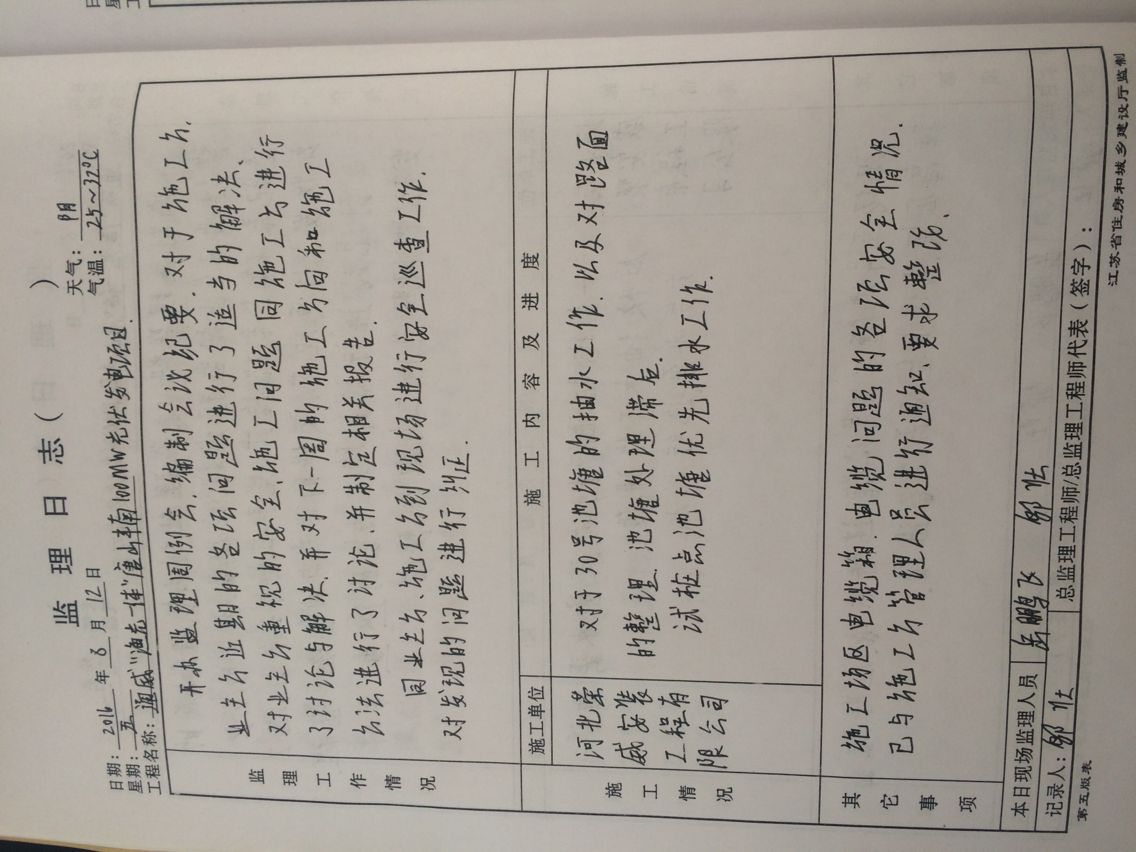 监 理 日 志（ ）
日期：2016 年 8 月 12 日
星期：五
天气：阴
气温：25～32℃
工程名称：通威"渔光一体"唐山丰南100MW光伏发电项目.
监理工作情况
开办监理周例会.编制会议纪要.对于施工方.
业主方近期的各项问题进行了适当的解决、
对业主方重视的安全、施工问题同施工方进行
了讨论与解决.并对下一周的施工方向和施工
方法进行了讨论、并制定相关报告.
同业主方、施工方到现场进行安全巡查工作.
对发现的问题进行纠正.
施工情况
施工单位
施 工 内 容 及 进 度
河北荣
威安装
工程有
限公司
对于30号池塘的抽水工作.以及对路面
的整理.池塘处理滞后.
试桩点池塘优先排水工作.
其它事项
施工场区电缆箱.电缆问题的各项安全情况.
已与施工方管理人员进行通知.要求整改、
本日现场监理人员
岳鹏飞 郭壮
记录人：郭壮
总监理工程师/总监理工程师代表（签字）：
第五版表
江苏省住房和城乡建设厅监制